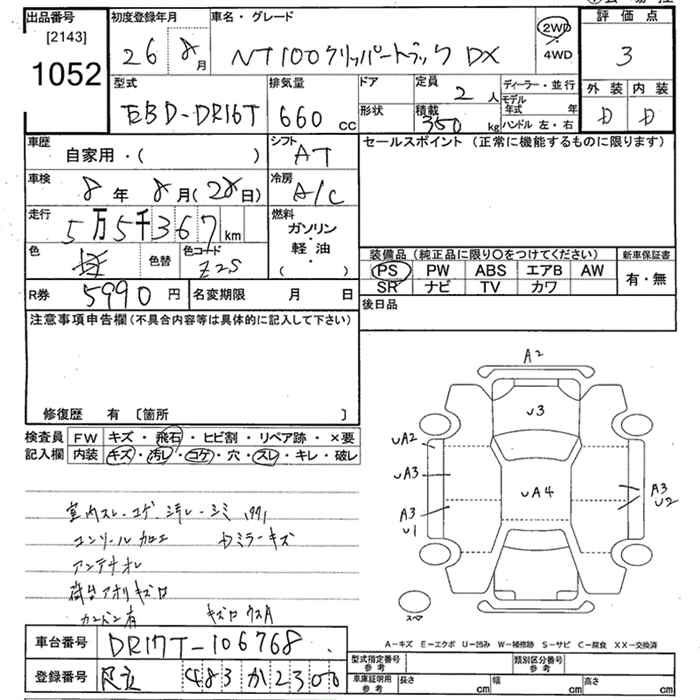 出品番号 初度登録年月 車名・グレード 2WD 評価点
[2143] 1052 26 8月 NT100クリッパートラック DX 4WD 3
型式 排気量 ドア 定員 2人 ディーラー・並行 外装 内装
EBD-DR16T 660cc 形状 積載 350kg モデル年式 年 D D
ハンドル 左・右
車歴 シフト セールスポイント (正常に機能するものに限ります)
自家用・( ) AT
車検 8年 8月(28日) 冷房 A/C
走行 5万5千367km 燃料 ガソリン・軽油・( )
色 色替 色コード Z2S
装備品 (純正品に限り○をつけてください) 新車保証書
PS PW ABS エアB AW 有・無
SR ナビ TV カワ
R券 5990円 名変期限 月 日 後日品
注意事項申告欄(不具合内容等は具体的に記入して下さい)
修復歴 有 〔箇所 〕
検査員 FW キズ・飛石・ヒビ割・リペア跡・×要
記入欄 内装 キズ・汚レ・コゲ・穴・スレ・キレ・破レ
A2
U3
UA2
UA3
UA4
A3
U1
A3
U2
スペア
室内スレ・コゲ・ヨゴレ・シミ
コンソール加工 ミラーキズ
アンテナオレ
荷台アオリキズ
カンバン有
A-キズ E-エクボ U-凹み W-補修跡 S-サビ C-腐食 XX-交換済
車台番号 DR17T-106768
登録番号 足立 483 か 2300
型式指定番号 参考 類別区分番号 参考
車庫証明用 参考 長さ cm 幅 cm 高さ cm